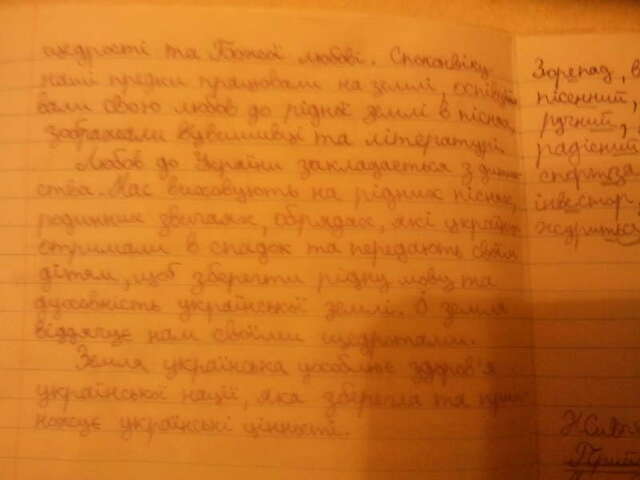 щедрості та Божої любові. Споконвіку
наші предки працювали на землі, оспіву
вали свою любов до рідної землі в піснях,
зображали у вишивці та літературі.
Любов до України закладається з дитин
ства. Нас виховують на рідних піснях,
родинних звичаях, обрядах, які українці
отримали в спадок та передають своїм
дітям, щоб зберегти рідну мову та
духовність української землі. О земля
віддячує нам своїми щедротами.
Земля українська уособлює здоров'я
української нації, яка зберегла та при
українські цінності.
Зорепад, в
пісенний,
ручний,
радісний
спорт
інвестор,
журиться